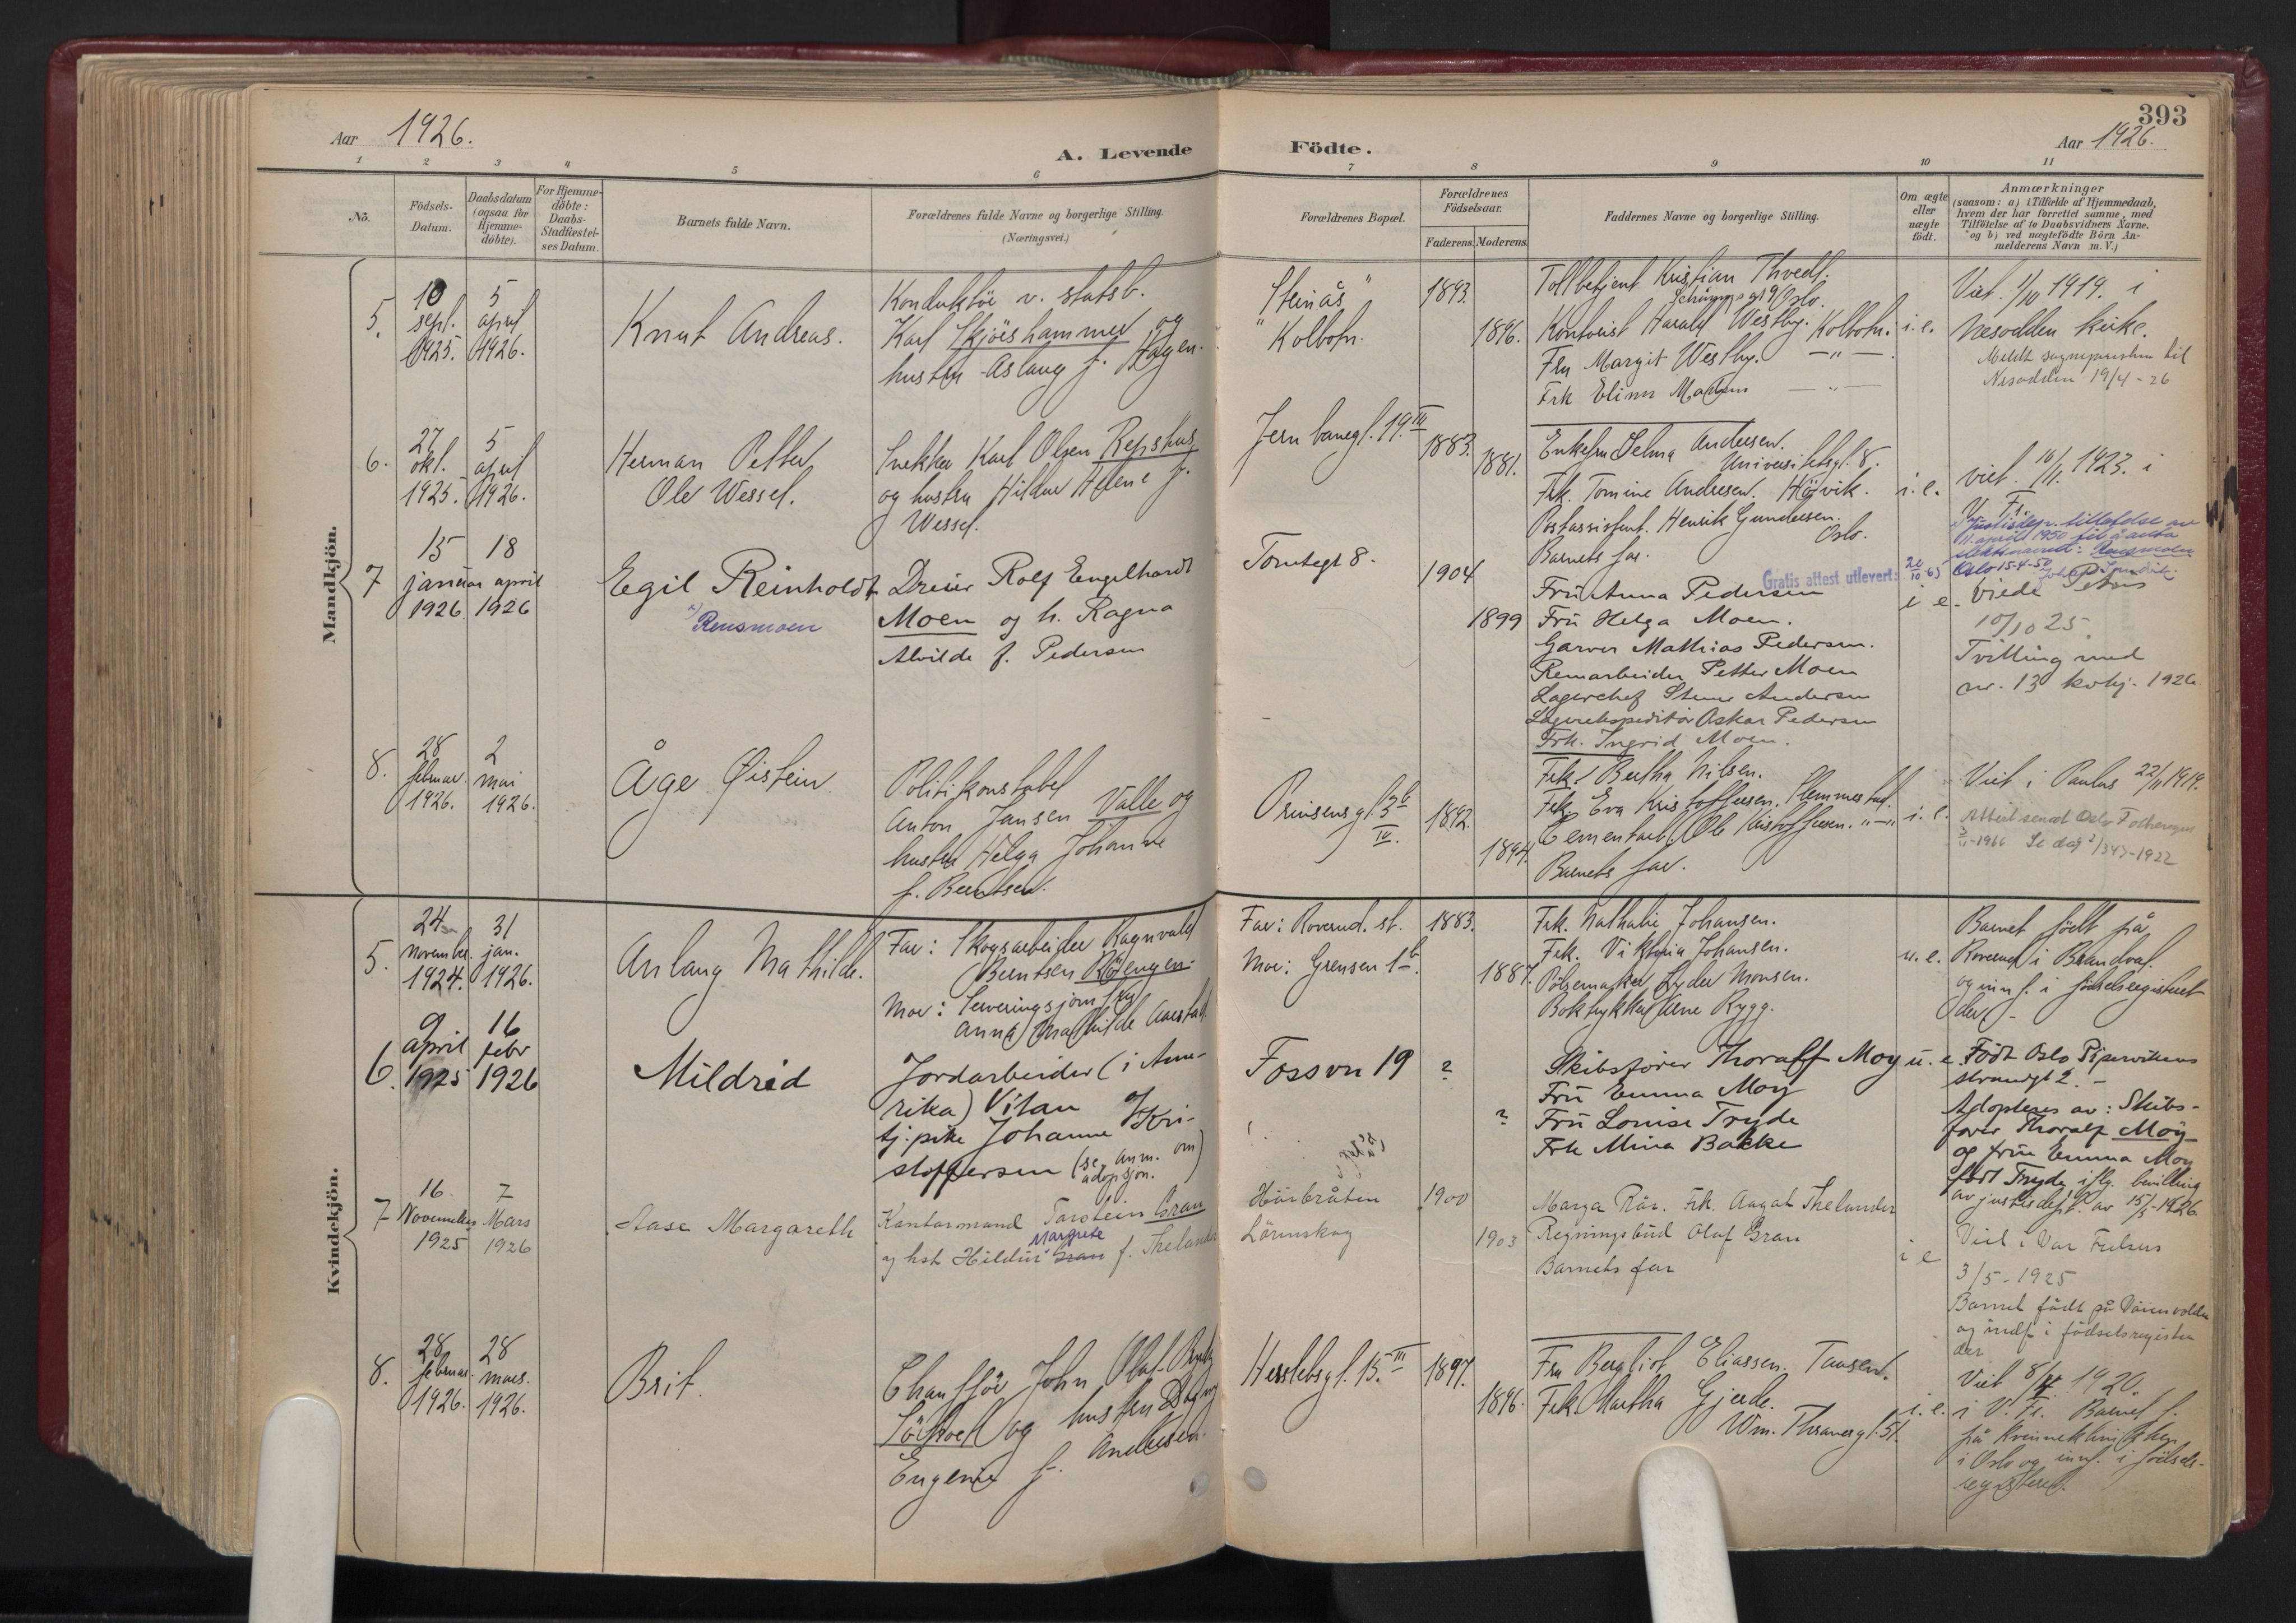 393
Aar 1926.
A. Levende Födte.
Aar 1926.
1 2 3 4 5 6 7 8 9 10 11
No.
Födsels-
Datum.
Daabsdatum
(ogsaa for
Hjemme-
döbte).
For Hjemme-
döbte:
Daabs-
Stadfæstel-
ses Datum.
Barnets fulde Navn.
Forældrenes fulde Navne og borgerlige Stilling.
(Næringsvei.)
Forældrenes Bopæl.
Forældrenes
Födselsaar.
Faderens. Moderens.
Faddernes Navne og borgerlige Stilling.
Om ægte
eller
uægte
födt.
Anmærkninger
(saasom: a) i Tilfælde af Hjemmedaab,
hvem der har forrettet samme, med
Tilföielse af to Daabsvidners Navne,
og b) ved uægtefödte Börn An-
melderens Navn m. V.)
Mandkjön.
5.
10
sept.
1925.
5
april
1926.
Knut Andreas.
Konduktör v. statsb.
Karl Skjöishammer og
hustru Aslaug f. Hagen.
"Steinås"
Kolbotn.
1893.
1896.
Tollbetjent Kristian Thvedt.
Schüppsgt 9 Oslo.
Kontorist Harald Westby. Kolbotn.
Fru Margit Westby. — " —
Frk Elinn Madsen — " —
i. e.
Viet. 1/10 1919. i
Nesodden kirke.
Meldt sognepresten til
Nesodden 19/4-26
6.
27
okt.
1925.
5
april
1926.
Herman Petter
Ole Wessel.
Snekker Karl Olsen Repshus
og hustru Hildur Helene f.
Wessel.
Jernbanegt. 19. III
1883.
1881.
Enkefru Selma Andresen.
Universitetsgt. 8.
Frk. Tomine Andresen. Hövik.
Postassistent. Henrik Gundersen.
Oslo.
Barnets far.
i. e.
viet. 10/11. 1923. i
V. Fr.
7
15
januar
1926
18
april
1926
Egil Reinholdt
x) Rensmoen
Dreier Rolf Engelhardt
Moen og h. Ragna
Alvilde f. Pedersen
Tomtegt 8.
1904
1899
Gratis attest utlevert: 20/10 65
Fru Anna Pedersen
Fru Helga Moen.
Garver Mathias Pedersen.
Remarbeider Petter Moen
Lagerchef Stener Andersen
Lagerekspeditör Oskar Pedersen
Frk. Ingrid Moen.
i e.
x) Justisdep. tillatelse av
11. april 1950 til å anta
slektsnavnet: Rensmoen
Oslo 15-4-50
Viede Petrus
10/10 25.
Tvilling med
nr. 13 kvkj. 1926.
8.
28
februar.
1926.
2
mai
1926.
Åge Øistein.
Politikonstabel
Anton Jansen Valle og
hustru Helga Johanne
f. Berntsen.
Prinsensgt. 3b
IV.
1892.
1894.
Frk. Bertha Nilsen.
Frk. Eva Kristoffersen. Slemmestad.
Cementarb. Ole Kristoffersen. " — "
Barnets far.
i. e.
Viet i Paulus 22/11 1919.
Attest sendt Oslo Folkereg.
-1966 Se dag 2/343-1922
Kvindekjön.
5.
24
november.
1924.
31
jan.
1926.
Anlaug Mathilde.
Far: Skogsarbeider Ragnvald
Berntsen Röengen.
Mor: Serveringsjomfru
Anna Mathilde
Far: Roverud. st.
Mor: Grensen 1b.
1883.
1887.
Frk. Nathalie Johansen.
Frk. Viktoria Johansen.
Pölsemaker Lyder Monsen.
Boktrykker Arne Rygg.
u. e.
Barnet födt på
Roverud i Brandval.
og innf. i födselsregisteret
der.
6.
9
april
1925
16
febr
1926
Mildred
Jordarbeider (i Ame-
rika) Vitan og
tj.pike Johanne Kri-
stoffersen (se anm. om
adopsjon.)
Fossvn 19
?
?
Skibsförer Thoralf Moy
Frü Emma Moy
Frü Louise Tryde
Frk Mina Bakke
u. e.
Födt Oslo Pipervikens
strandgt 2. -
Adopteres av: Skibs-
förer Thoralf Moy
og frue Emma Moy
födt Tryde iflg. bevilling
av justisdept. av 15/3-1926
7
16.
November
1925
7
Mars
1926
Aase Margareth
Kontormand Torstein Gran
Margrete
og hst Hildur Gran f. Thelander
Lörenskog
1900
1903
Marga Rår. Frk. Aagat Thelander
Regningsbud Olaf Gran
Barnets far
i e
Viet i Vor Frelsers
3/5-1925
Barnet födt på
og indf i födselsregister
der
8.
28
februar
1926.
28
mars.
1926.
Brit.
Chaufför John Olaf
og hustru Dagny
Eugenie f. Andresen.
Herslebsgt. 15. III
1897.
1896.
Fru Bergliot Eliassen. Taasen.
Frk. Martha Gjerde.
Wm. Thranesgt. 51.
i. e.
Viet 8/ 1920.
i V. Fr. Barnet f.
på kvinneklinikken
i Oslo og innf. i födsels-
registeret.